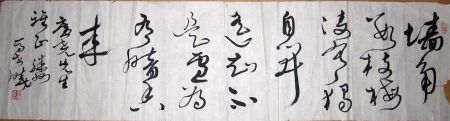 墙角
数枝梅
凌寒独
自开
遥知不
是雪为
有暗香
来
先生
雅正